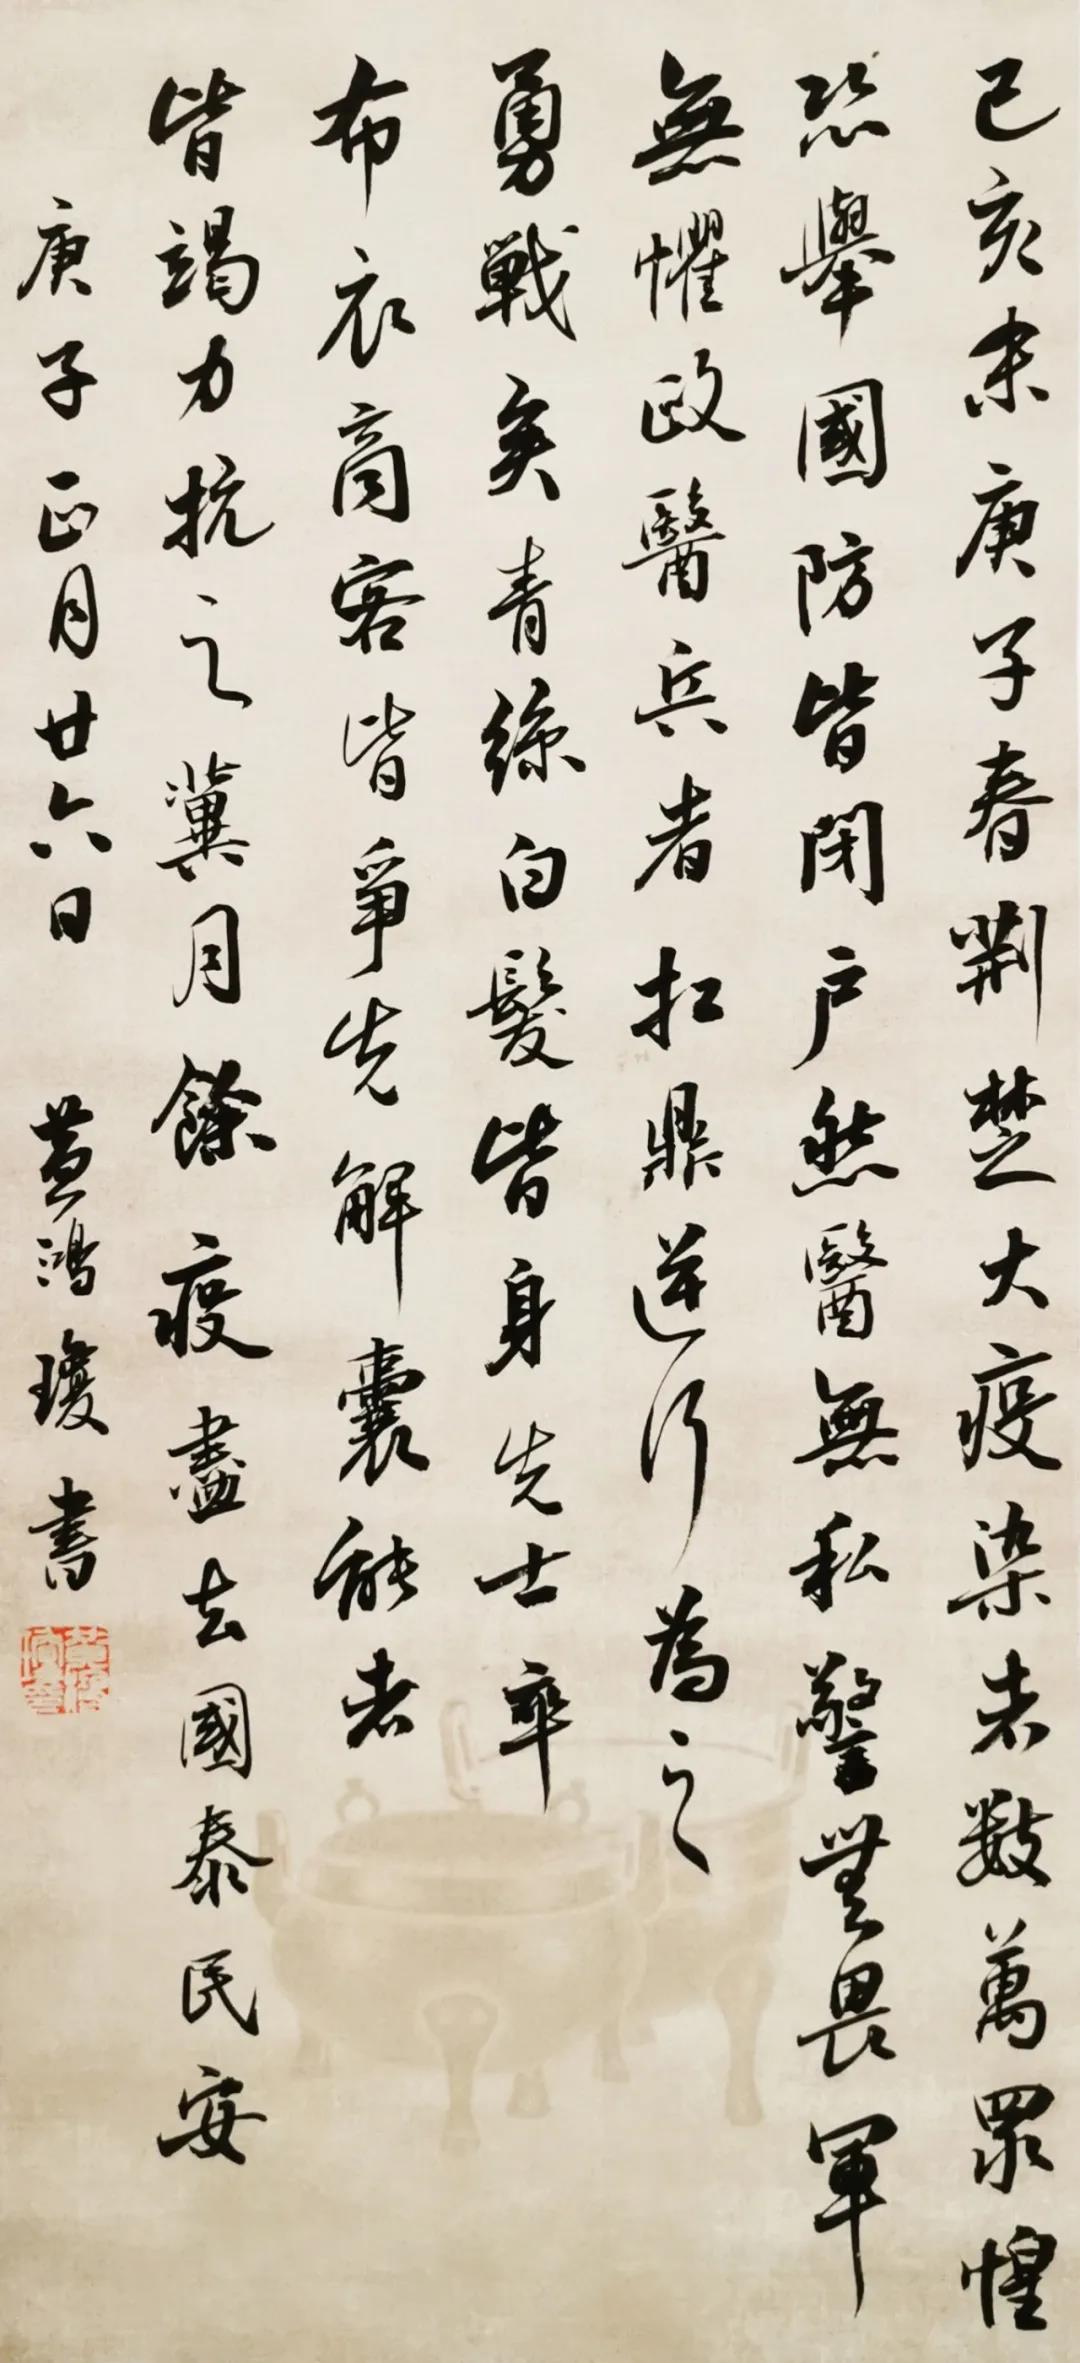 己亥末庚子春荆楚大疫染者数萬眾惶
恐舉國防皆閉户然醫無私警無畏軍
無懼政醫兵者扛鼎逆行為之
勇戰矣青絲白髮皆身先士卒
布衣商客皆爭先解囊能者
皆竭力抗之冀月餘疫盡去國泰民安
庚子正月廿六日 黄鴻瓊書